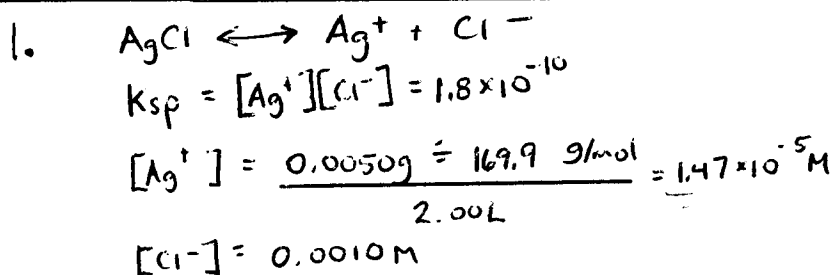 1. AgCl ⟷ Ag⁺ + Cl⁻
Ksp = [Ag⁺][Cl⁻] = 1.8×10⁻¹⁰
[Ag⁺] = 0.0050g ÷ 169.9 g/mol = 1.47×10⁻⁵ M
2.00L
[Cl⁻] = 0.0010M